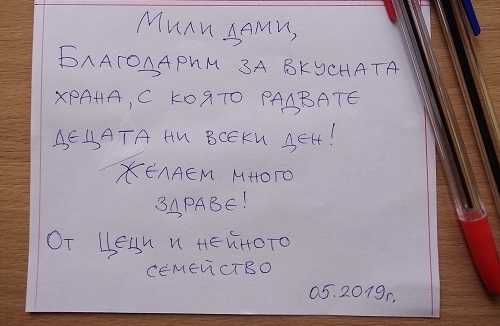 Мили дами,
Благодарим за вкусната
храна, с която радвате
децата ни всеки ден!
Желаем много
здраве!
От Цеци и нейното
семейство
05.2019г.